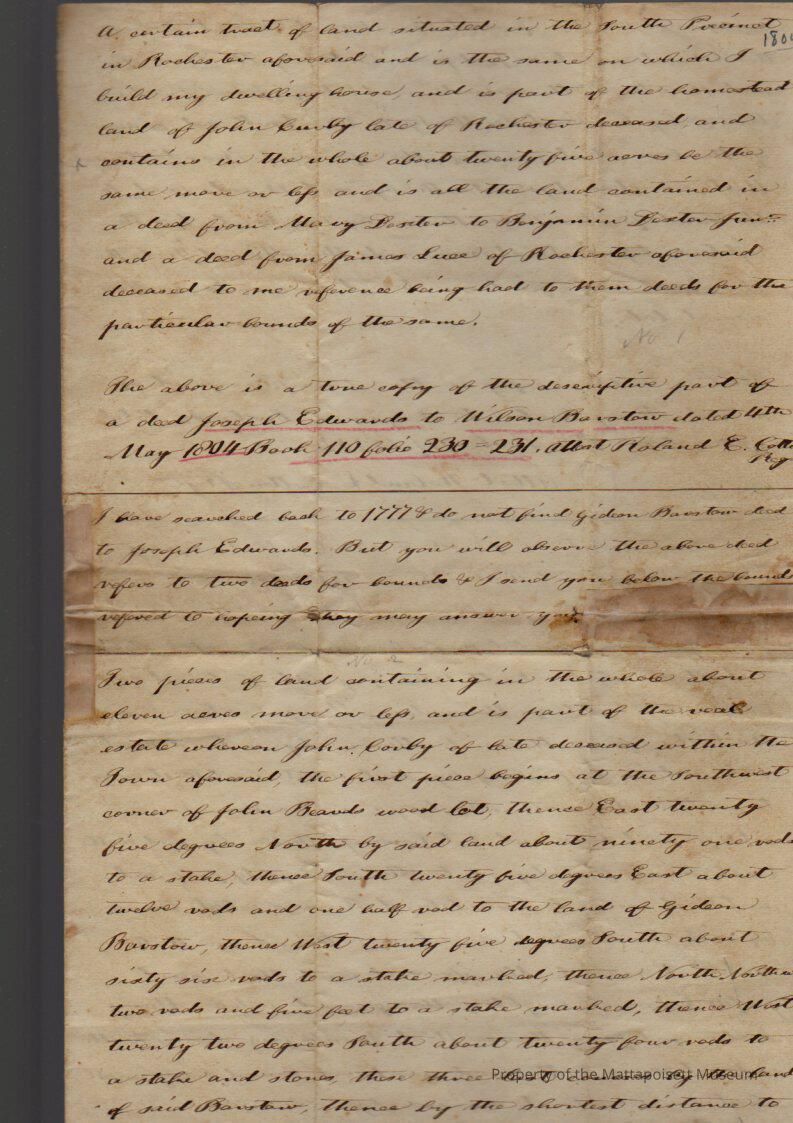 A certain tract of land situated in the South Precinct
in Rochester aforesaid and is the same on which I
build my dwelling house, and is part of the homestead
land of John Curby late of Rochester deceased and
contains in the whole about twenty five acres be the
same more or less and is all the land contained in
a deed from Mary Dexter to Benjamin Dexter Junr
and a deed from James Luce of Rochester aforesaid
deceased to me reference being had to them deeds for the
particular bounds of the same.
No 1
The above is a true copy of the descriptive part of
a deed Joseph Edwards to Wilson Barstow dated 4th
May 1804 Book 110 folio 230 = 231. Attest Roland E. Cotton
Reg
I have searched back to 1777 & do not find Gideon Barstow deed
to Joseph Edwards. But you will observe the above deed
refers to two deeds for bounds & I send you below the bounds
refered to hopeing they may answer you
No 2
Two pieces of land containing in the whole about
eleven acres more or less, and is part of the real
estate whereon John Corby of late deceased within the
Town aforesaid, the first piece begins at the Southwest
corner of John Beards wood lot, thence East twenty
five degrees North by said land about ninety one rods
to a stake, thence South twenty five degrees East about
twelve rods and one half rod to the land of Gideon
Barstow, thence West twenty five degrees South about
sixty six rods to a stake marked, thence North
two rods and five feet to a stake marked, thence West
twenty two degrees South about twenty four rods to
a stake and stones, these three by the land
of said Barstow, thence by the shortest distance to
Property of the Mattapoisett Museum